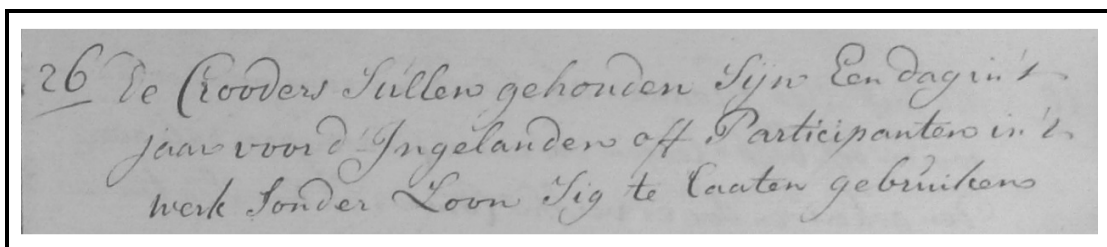 26 de Crooders Sullen gehouden Sijn Een dag in't
jaar voor d'Ingelanden off Participanten in't
werk Sonder Loon Sig te Laaten gebruiken